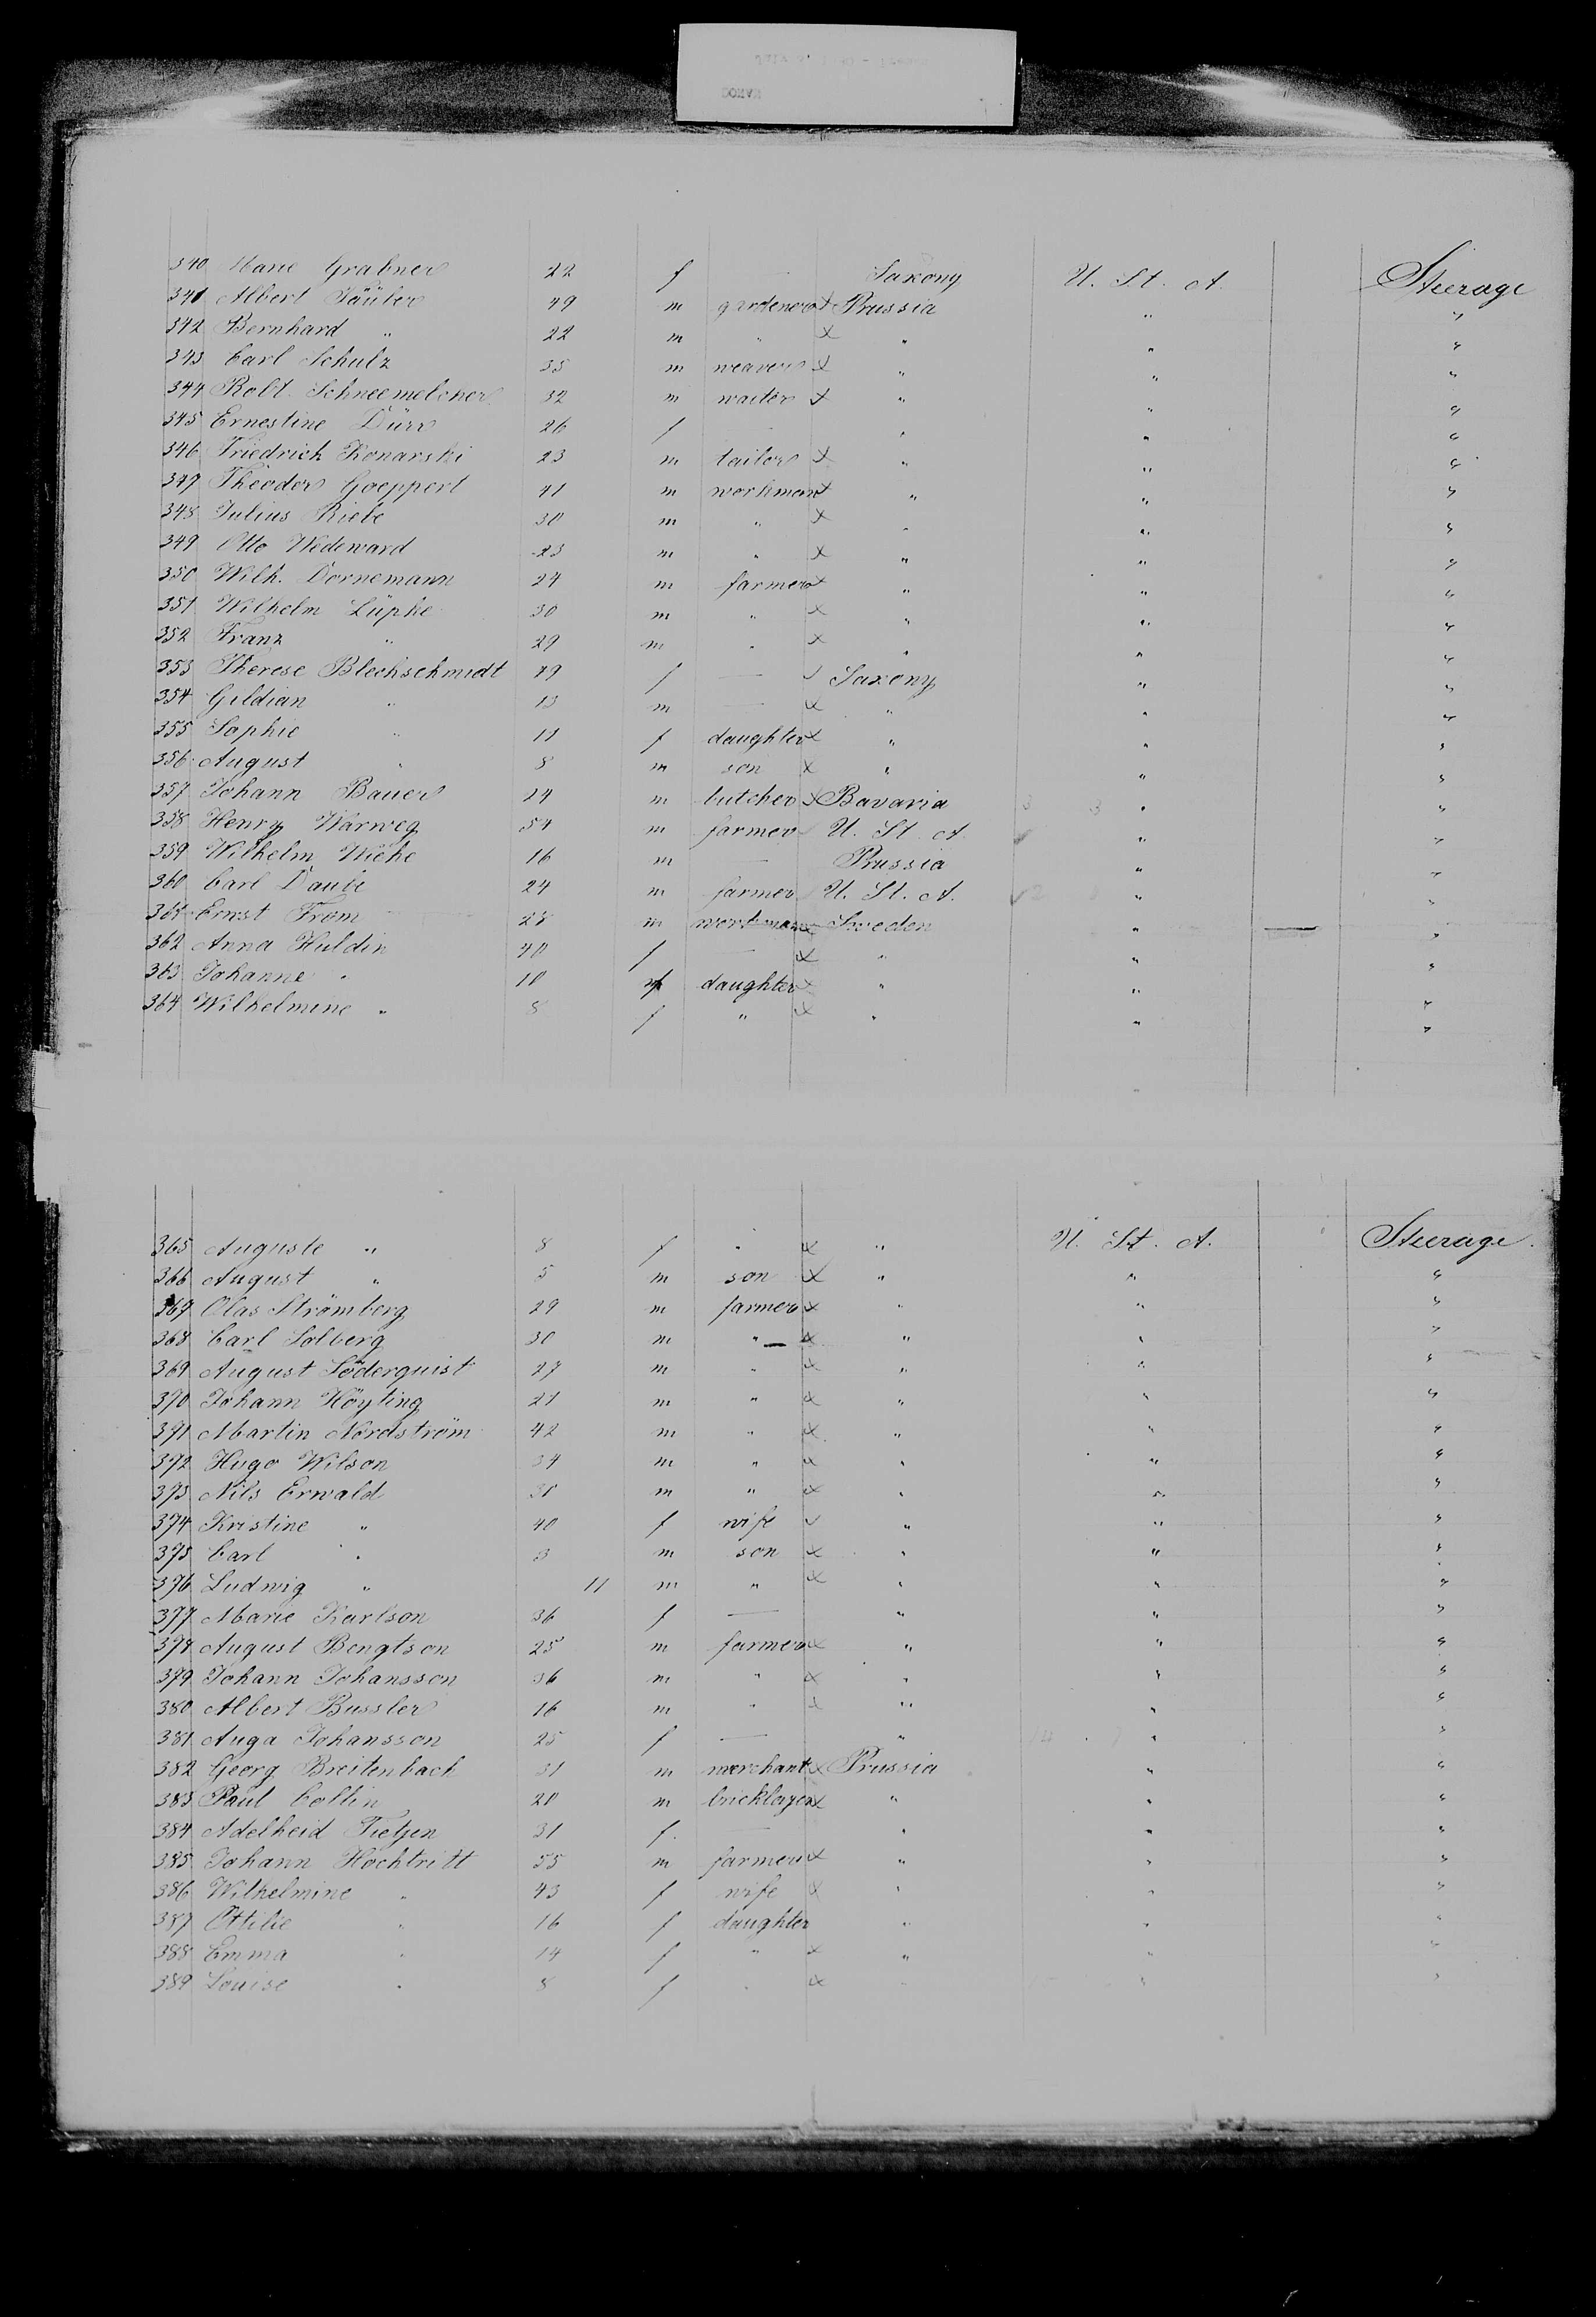 340 Marie Grabner 22 f — Saxony U. St. A. Steerage
341 Albert Täuber 49 m gardener x Prussia " "
342 Bernhard " 22 m " x " " "
343 Carl Schulz 35 m weaver x " " "
344 Robt. Schneemelcher 32 m waiter x " " "
345 Ernestine Dürr 26 f - " " "
346 Friedrich Konarski 23 m tailor x " " "
347 Theodor Goeppert 41 m workman x " " "
348 Julius Riebe 30 m " x " " "
349 Otto Wedeward 23 m " x " " "
350 Wilh. Dornemann 24 m farmer x " " "
351 Wilhelm Lüpke 30 m " x " " "
352 Franz " 29 m " x " " "
353 Therese Blechschmidt 49 f — Saxony " "
354 Gildian " 13 m — x " " "
355 Sophie " 11 f daughter x " " "
356 August " 8 m son x " " "
357 Johann Bauer 24 m butcher x Bavaria " "
358 Henry Warweg 54 m farmer U. St. A. " "
359 Wilhelm Wiehe 16 m — Prussia " "
360 Carl Daute 24 m farmer U. St. A. " "
361 Ernst From 28 m workman x Sweden " — "
362 Anna Huldin 40 f — x " " "
363 Johanne " 10 f daughter x " " "
364 Wilhelmine " 8 f " x " " "
365 Auguste " 8 f " x " U. St. A. Steerage.
366 August " 5 m son x " " "
367 Olas Strömberg 29 m farmer x " " "
368 Carl Solberg 30 m " x " " "
369 August Söderquist 27 m " x " " "
370 Johann Höyling 21 m " x " " "
371 Martin Nordström 42 m " x " " "
372 Hugo Wilson 34 m " x " " "
373 Nils Erwald 38 m " x " " "
374 Kristine " 40 f wife x " " "
375 Carl " 3 m son x " " "
376 Ludwig " 11 m " x " " "
377 Marie Karlson 36 f — " " "
378 August Bengtson 25 m farmer x " " "
379 Johann Johansson 36 m " x " " "
380 Albert Bussler 16 m " x " " "
381 Auga Johansson 25 f — " " "
382 Georg Breitenbach 31 m merchant x Prussia " "
383 Paul Collin 20 m bricklayer x " " "
384 Adelheid Tietjen 31 f. — " " "
385 Johann Hochtritt 55 m farmer x " " "
386 Wilhelmine " 43 f wife x " " "
387 Ottilie " 16 f daughter " " "
388 Emma " 14 f " x " " "
389 Louise " 8 f " x " " "